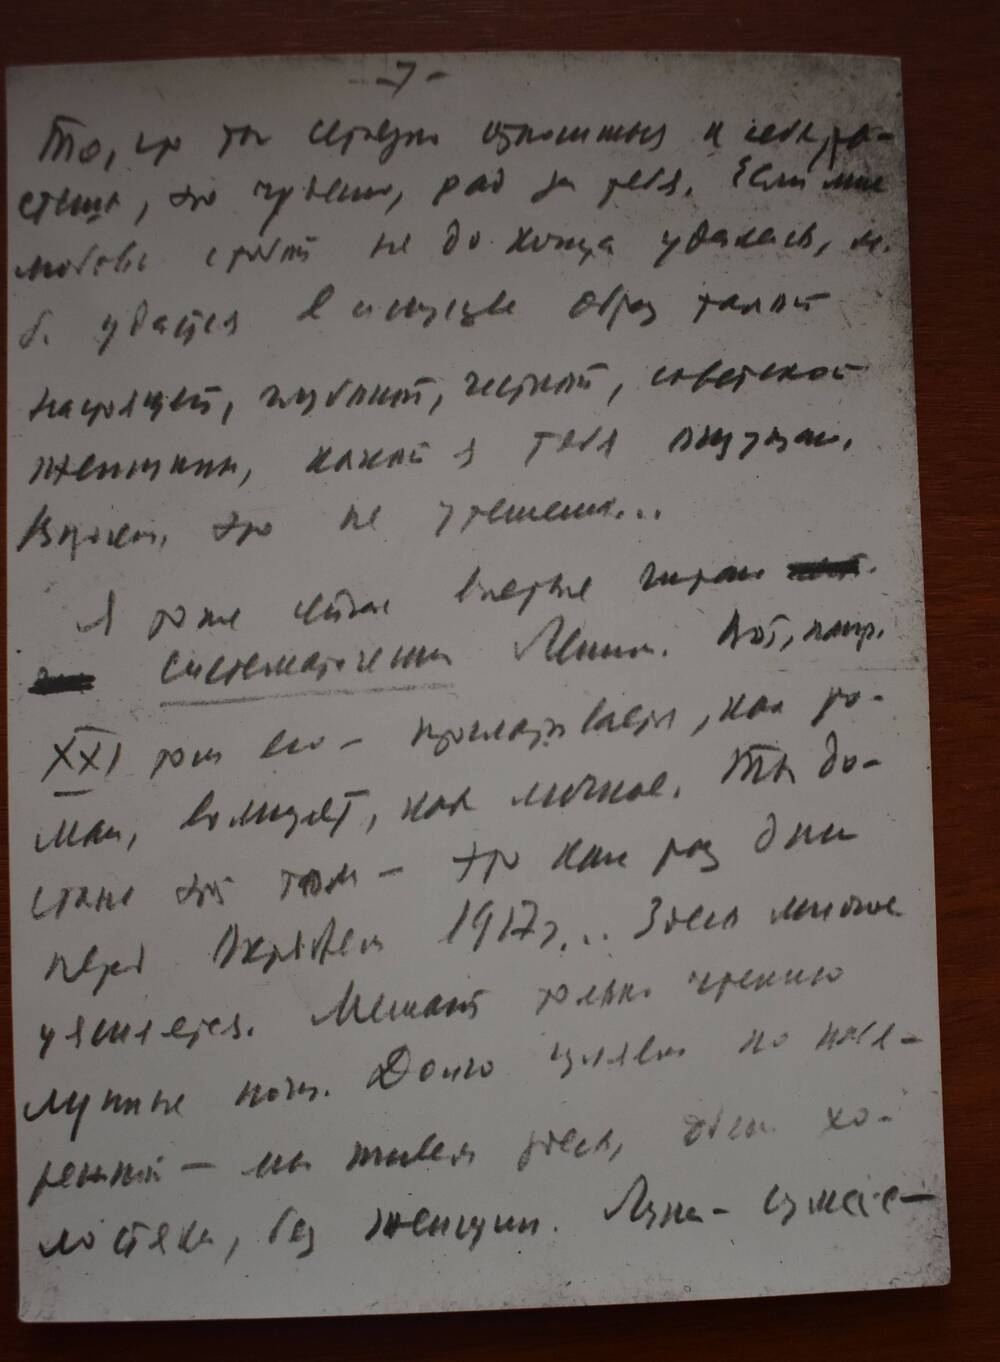 -7-
То, что ты серьезно относишься к себе, ра-
стешь, это чудесно, рад за тебя. Если мне
любовь с тобой не до конца удалась, м.
б. удастся в искусстве образ такой
настоящей, глубокой, честной, советской
женщины, какой я тебя ощущаю.
Впрочем, это не утешение...
Я тоже сейчас впервые читаю
систематически Ленина. Вот, напр.
XXI том его — проглатывается, как ро-
ман, волнует, как личное. Ты до-
стань этот том — это как раз дни
перед Октябрем 1917 г... Здесь многое
уясняется. Мешают только чтению
лунные ночи. Долго гуляем по набе-
режной — мы живем здесь, одни хо-
лостяки, без женщин. Луна — сумасше-